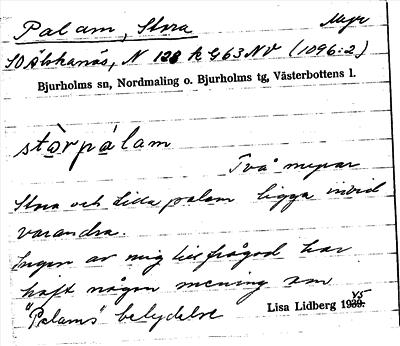 Palam, Stora Myr
SO Älskanäs, N 128 k G63 NV (1096:2)
Bjurholms sn, Nordmaling o. Bjurholms tg, Västerbottens l.
stòrpálam
Två myrar
Stora och Lilla palam ligga invid
varandra.
Ingen av mig tillfrågad har
haft någon mening om
"Palams" betydelse
Lisa Lidberg 1939. 45